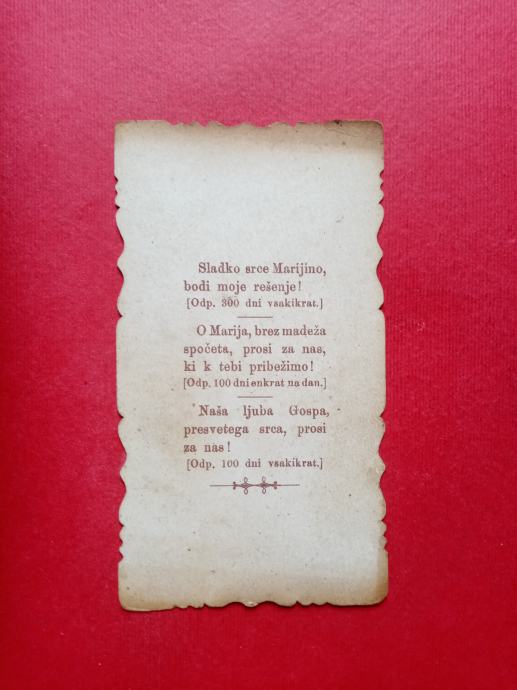 Sladko srce Marijino,
bodi moje rešenje!
[Odp. 300 dni vsakikrat.]
O Marija, brez madeža
spočeta, prosi za nas,
ki k tebi pribežimo!
[Odp. 100 dni enkrat na dan.]
Naša ljuba Gospa,
presvetega srca, prosi
za nas!
[Odp. 100 dni vsakikrat.]